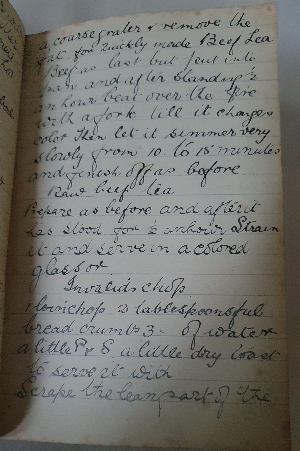 a coarse grater & remove the
fat for Quickly made Beef Tea
Beef as last but put into
pan and after standing ½
an hour beat over the fire
with a fork till it changes
color then let it simmer very
slowly from 10 to 15 minutes
and finish off as before
Raw beef tea
Prepare as before and after it
has stood for ½ an hour Strain
it and serve in a colored
glass or
Invalids chop
1 loin chop 2 tablespoonsful
bread crumbs 3 of water
a little P & S a little dry toast
to serve it with
Scrape the lean part of the